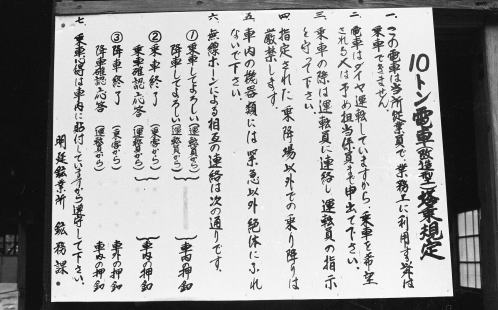 10トン電車(改造型)搭乗規定
一、この電車は当所従業員で、業務上に利用する以外は
乗車できません。
二、電車はダイヤ運転していますから、乗車を希望
される人は予め担当係員まで申出て下さい。
三、乗車の際は運転員に連絡し運転員の指示
を守って下さい。
四、指定された乗降場以外での乗り降りは
厳禁します。
五、車内の機器類には緊急以外絶体にふれ
ないで下さい。
六、無線ホーンによる相互の連絡は次の通りです。
①乗車してよろしい(運転員から) 車内の押釦
降車してよろしい(運転員から)
②乗車終了(乗客から) 車内の押釦
乗車確認応答(運転員から)
③降車終了(乗客から) 車外の押釦
降車確認応答(運転員から) 車内の押釦
七、乗車心得は車内に貼付していますから遵守して下さい。
明延鉱業所 鉱務課